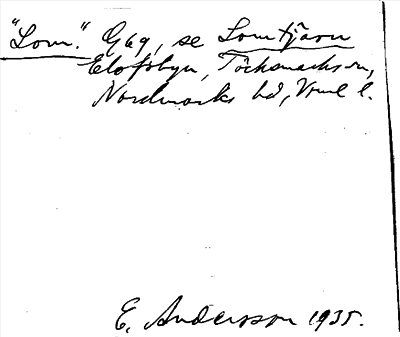 "Lom". G69, se Lomtjärn
Elofsbyn, Töcksmarks sn,
Nordmarks hd, Vrml l.
E. Andersson 1935.